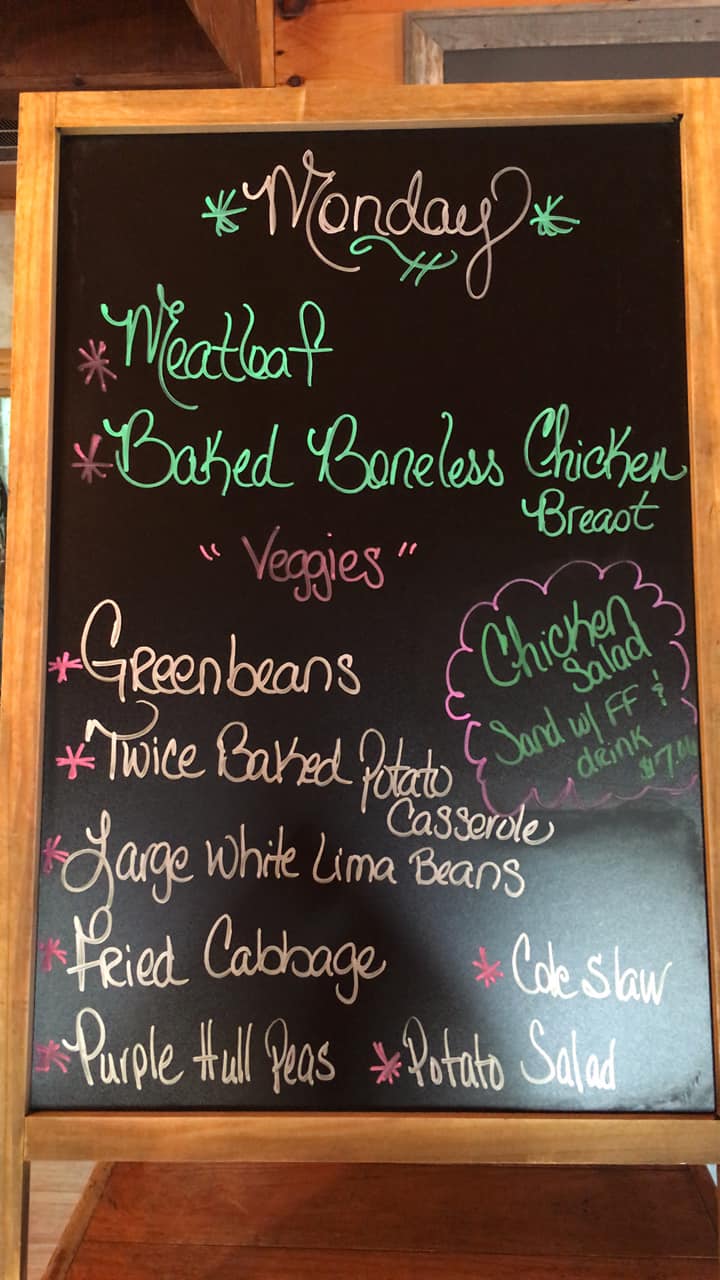 Monday
Meatloaf
Baked Boneless Chicken
Breast
"Veggies"
Greenbeans
Twice Baked Potato
Casserole
Large White Lima Beans
Fried Cabbage
Purple Hull Peas
Chicken
Salad
Sand w/ FF &
drink
Cole slaw
Potato Salad